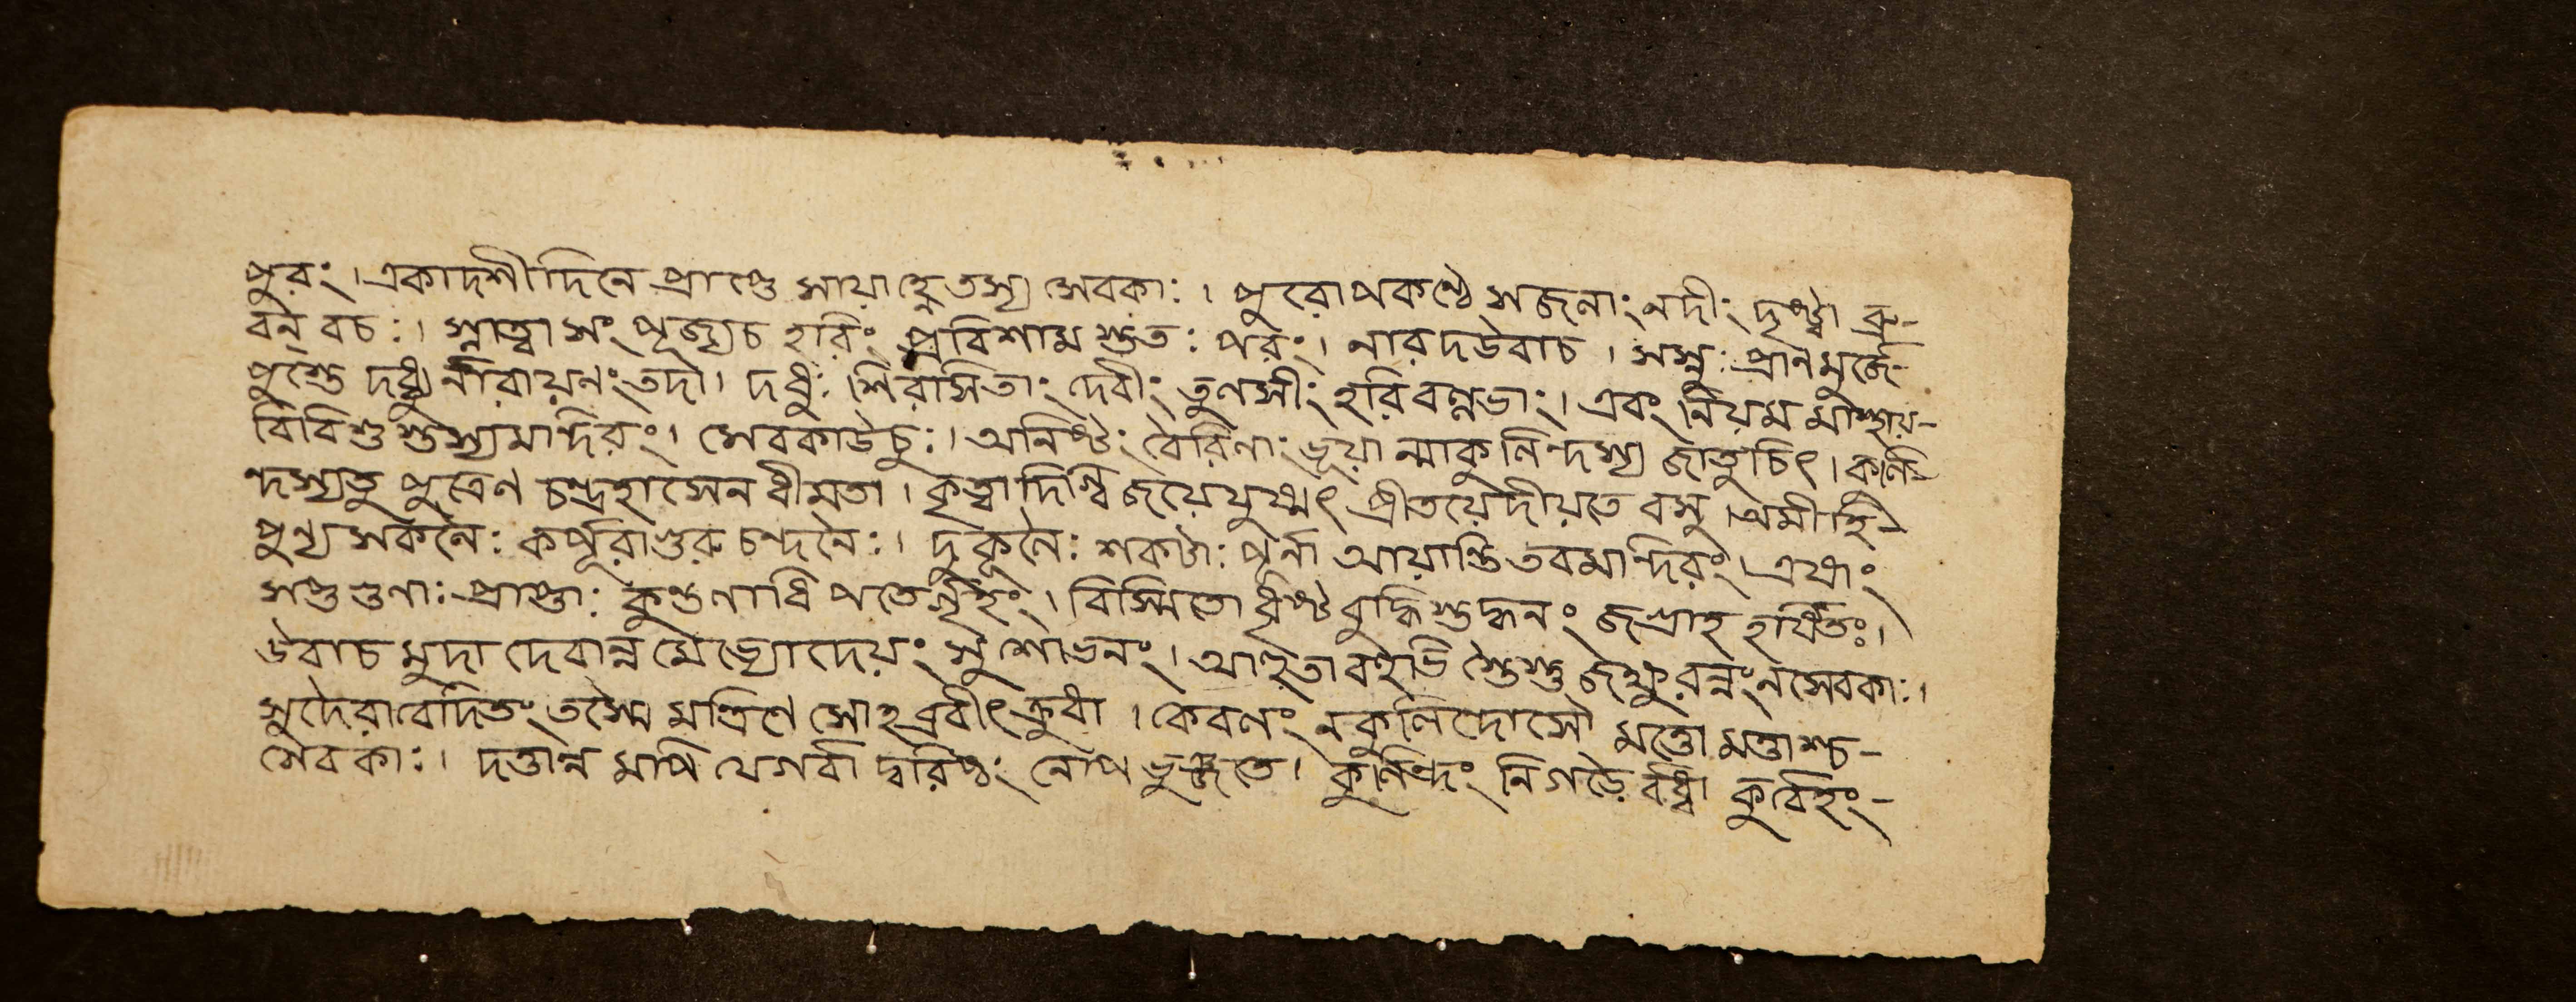 পুরং।একাদশীদিনে প্রাপ্তে সায়াহ্নে তস্য সেবকাঃ। পুরোপকণ্ঠে সজলাং নদীং দৃষ্ট্বা ব্রু-
বন্ বচঃ। স্নাত্বা সংপূজ্যচ হরিং প্রবিশাম স্তুতঃ পরং। নারদউবাচ। সস্নুঃ প্রানমুর্জে-
পুস্তে দধ্যু র্নারায়নংতদা। দধুঃ শিরসিতাং দেবীং তুলসীং হরিবল্লভাং। এবং নিয়ম মাস্থায়-
বিবিশু স্তস্যমন্দিরং। সেবকাউচুঃ। অনিষ্টং বৈরিণাং ভূয়া ন্মাকুলিন্দস্য জাতুচিৎ। কলি-
ন্দস্যতু পুত্রেণ চন্দ্রহাসেন ধীমতা। কৃত্বাদিগ্বিজয়েযুষ্মৎ প্রীতয়েদীয়তে বসু। অমীহি-
পুন্য সকলৈঃ কর্পূরাগুরু চন্দনৈঃ। দুকূলৈঃ শকটাঃ পূর্না আয়ান্তি তবমন্দিরং। এষাং
সপ্তগুনাঃ প্রাপ্তাঃ কুন্তলাধিপতের্গৃহং। বিস্মিতো ধৃষ্টবুদ্ধিস্তদ্ধনং জগ্রাহ হর্ষিতঃ।
উবাচ মুদা দেবান্ন মেভ্যোদেয়ং সুশোভনং। আহূতা বহুভি স্তৈস্তু জক্ষুরন্নংনসেবকাঃ।
সুদৈরাবেদিতং তস্মৈ মন্ত্রিণে সোহব্রবীৎক্রুধা। কেবলং নকুলিন্দোসৌ মত্তো মত্তাশ্চ-
সেবকাঃ। দত্তান্ন মপি যেগর্বা দ্বরিষ্ঠং নোপভুঞ্জতে। কুলিন্দং নিগড়ৈ র্বধ্বা